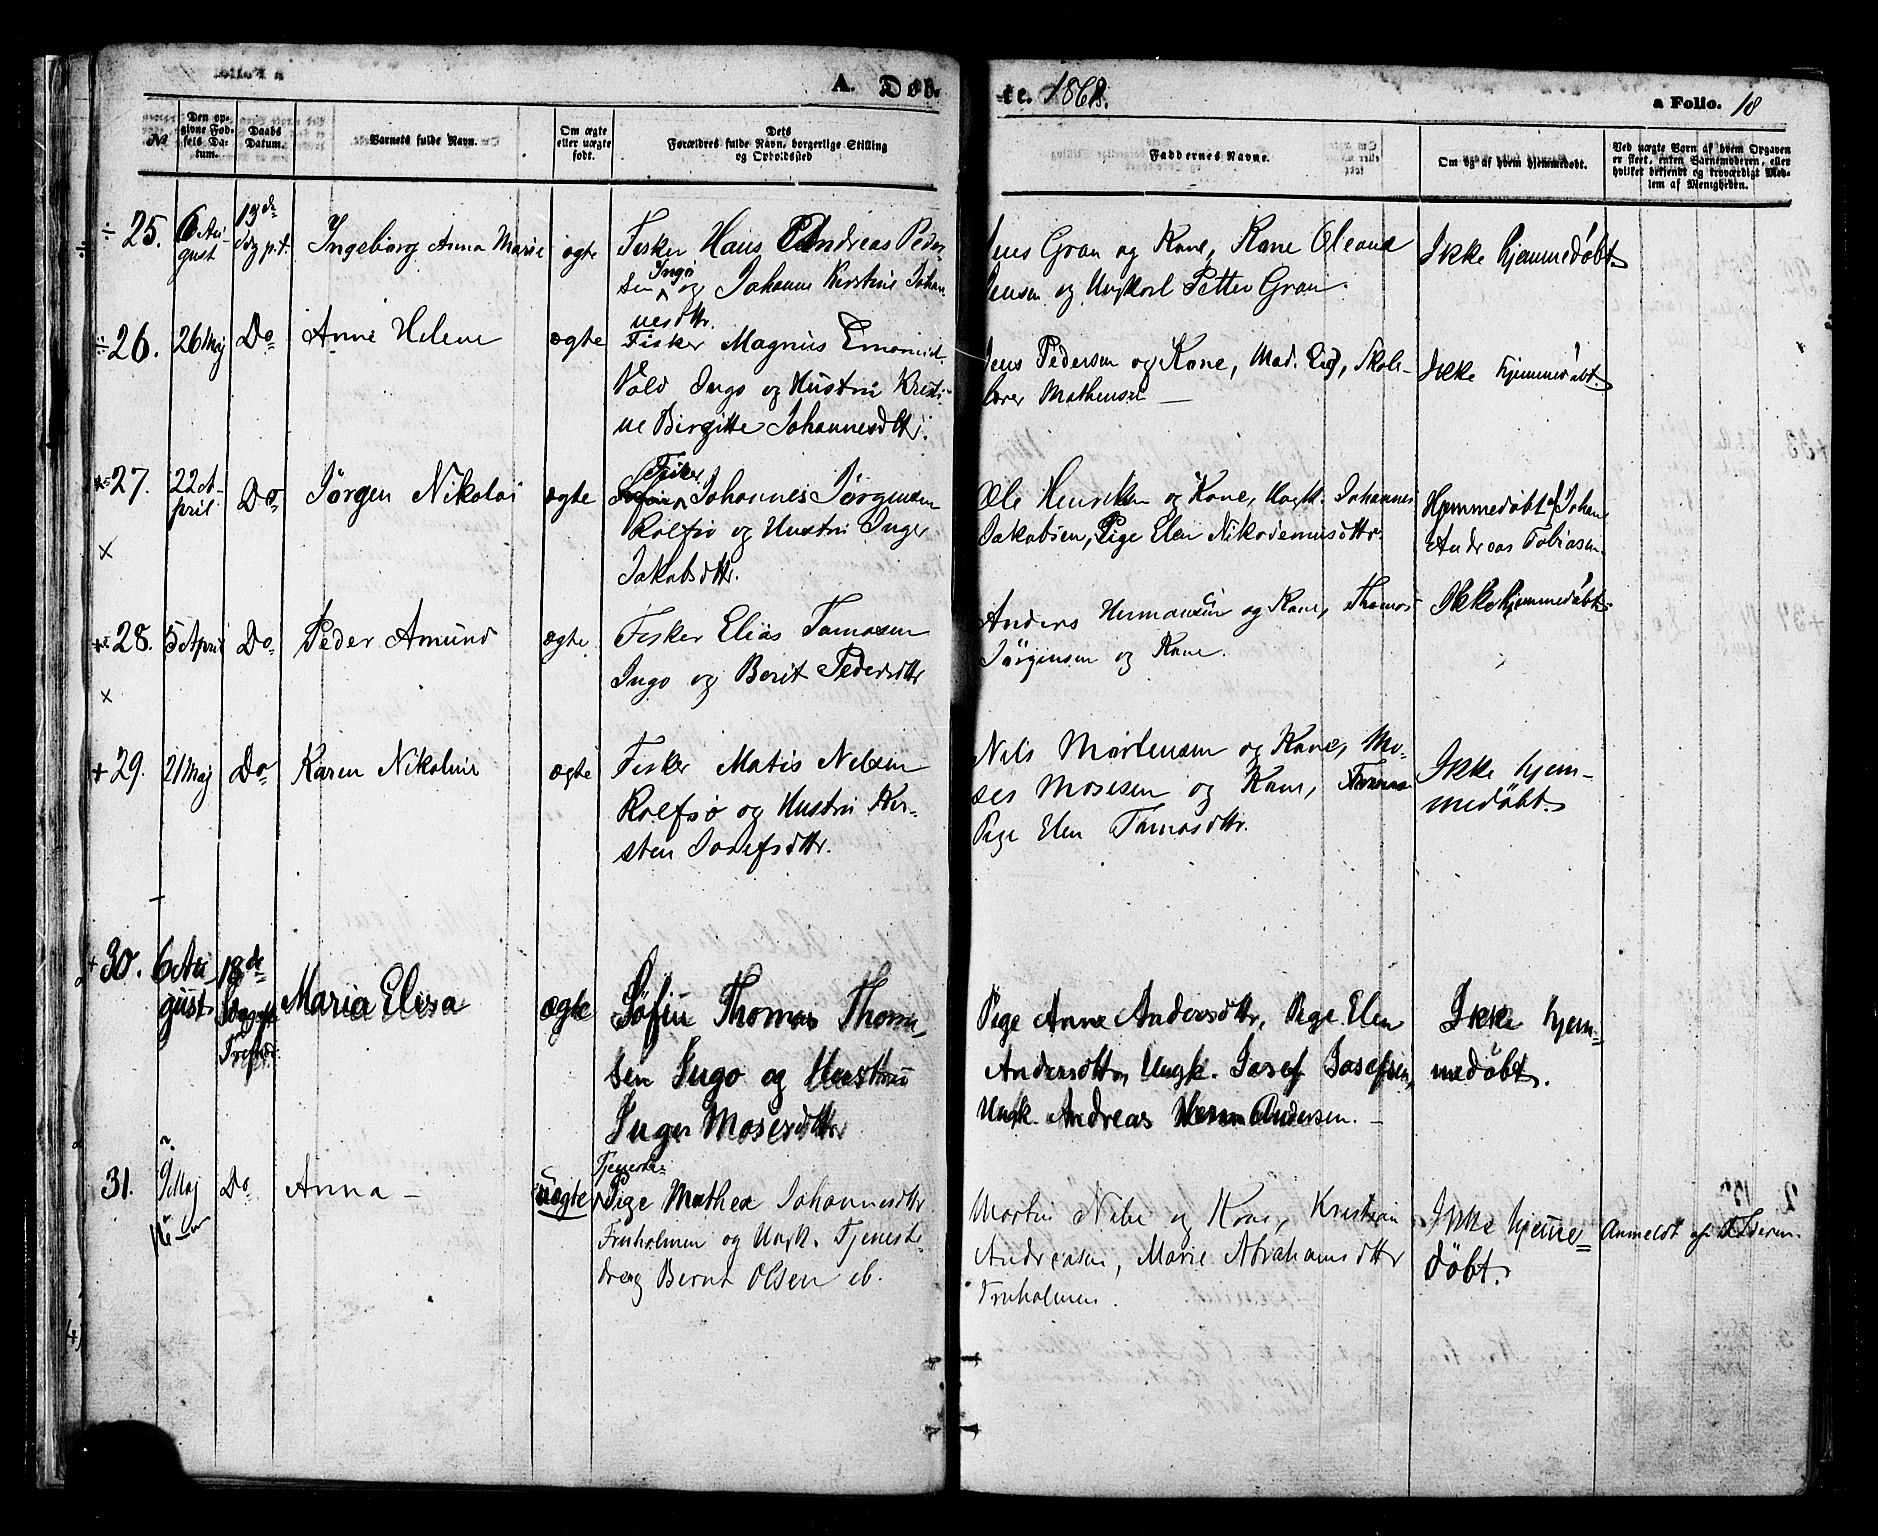 A. Døb-
te. 1868.
a Folio. 18
No
Den op-
givne Fød-
sels Da-
tum.
Daabs
Datum.
Barnets fulde Navn.
Om ægte
eller uægte
født.
Dets
Forældres fulde Navn, borgerlige Stilling
og Opholdssted
Faddernes Navne.
Om og af hvem hjemmedøbt.
Ved uægte Børn af hvem Opgaven
er skeet, enten Barnemoderen, eller
hvilket bekjendt og troværdigt Med-
lem af Menigheden.
÷ 25.
6 Au
gust
13de
Sdg p.t.
Ingeborg Anna Marie
ægte
Fisker Hans Andreas Peder
sen Ingø og Johanne Kirstine Johan
nesdttr.
Jens Gran og Kone, Kone Oleana
Jensen og Ungkarl Petter Gran.
Ikke hjemmedøbt.
÷ 26.
26 Maj
Do
Anne Helene
ægte
Fisker Magnus Emanuel
Vold Ingø og Hustru Kristi
ne Birgitte Johannesdttr.
Jens Pedersen og Kone, Mad. , Skole-
lærer Mathensen —
Ikke hjemmedøbt.
27.
22 A-
pril
Do
Jørgen Nikolai
ægte
Fisker
Johannes Jørgensen
Rolfsø og Hustru Inger
Jakobsdttr.
Ole Henriksen og Kone, Ungk. Johannes
Jakobsen, Pige Elen Nikodemusdttr.
Hjemmedøbt af Johan
Andreas Tobiasen.
x
28.
5 April
Do
Peder Amund
ægte
Fisker Elias Tomasen
Ingø og Berit Pedersdttr
Anders Hermansen og Kone, Thomas
Jørgensen og Kone.
Ikke hjemmedøbt
x
+ 29.
21 Maj
Do
Karen Nikoline
ægte
Fisker Matis Nilsen
Rolfsø og Hustru Kir-
sten Josefsdttr.
Nils Mortensen og Kone, Mo-
ses Mosesen og Kone,
Pige Elen Tomasdttr.
Ikke hjem-
medøbt.
+ 30.
6 Au-
gust
18de
Søndag e
Trefold.
Maria Elisa
ægte
Søfin Thomas Thom-
sen Ingø og Hustru
Inger Mosesdttr
Pige Anne Andersdttr, Pige Elen
Andersdttr, Ungk. Josef Josefsen,
Ungk. Andreas Andersen. —
Ikke hjem-
medøbt.
31.
9 Maj
Do
Anna —
uægte
Tjeneste-
Pige Mathea Johannesdttr
Fruholmen og Ungk. Tjeneste-
dreng Bernt Olsen ib.
Martin Nilsen og Kone, Kristian
Andreasen, Marie Abrahamsdttr
Fruholmen.
Ikke hjemme-
døbt.
Anmeldt af Faderen.